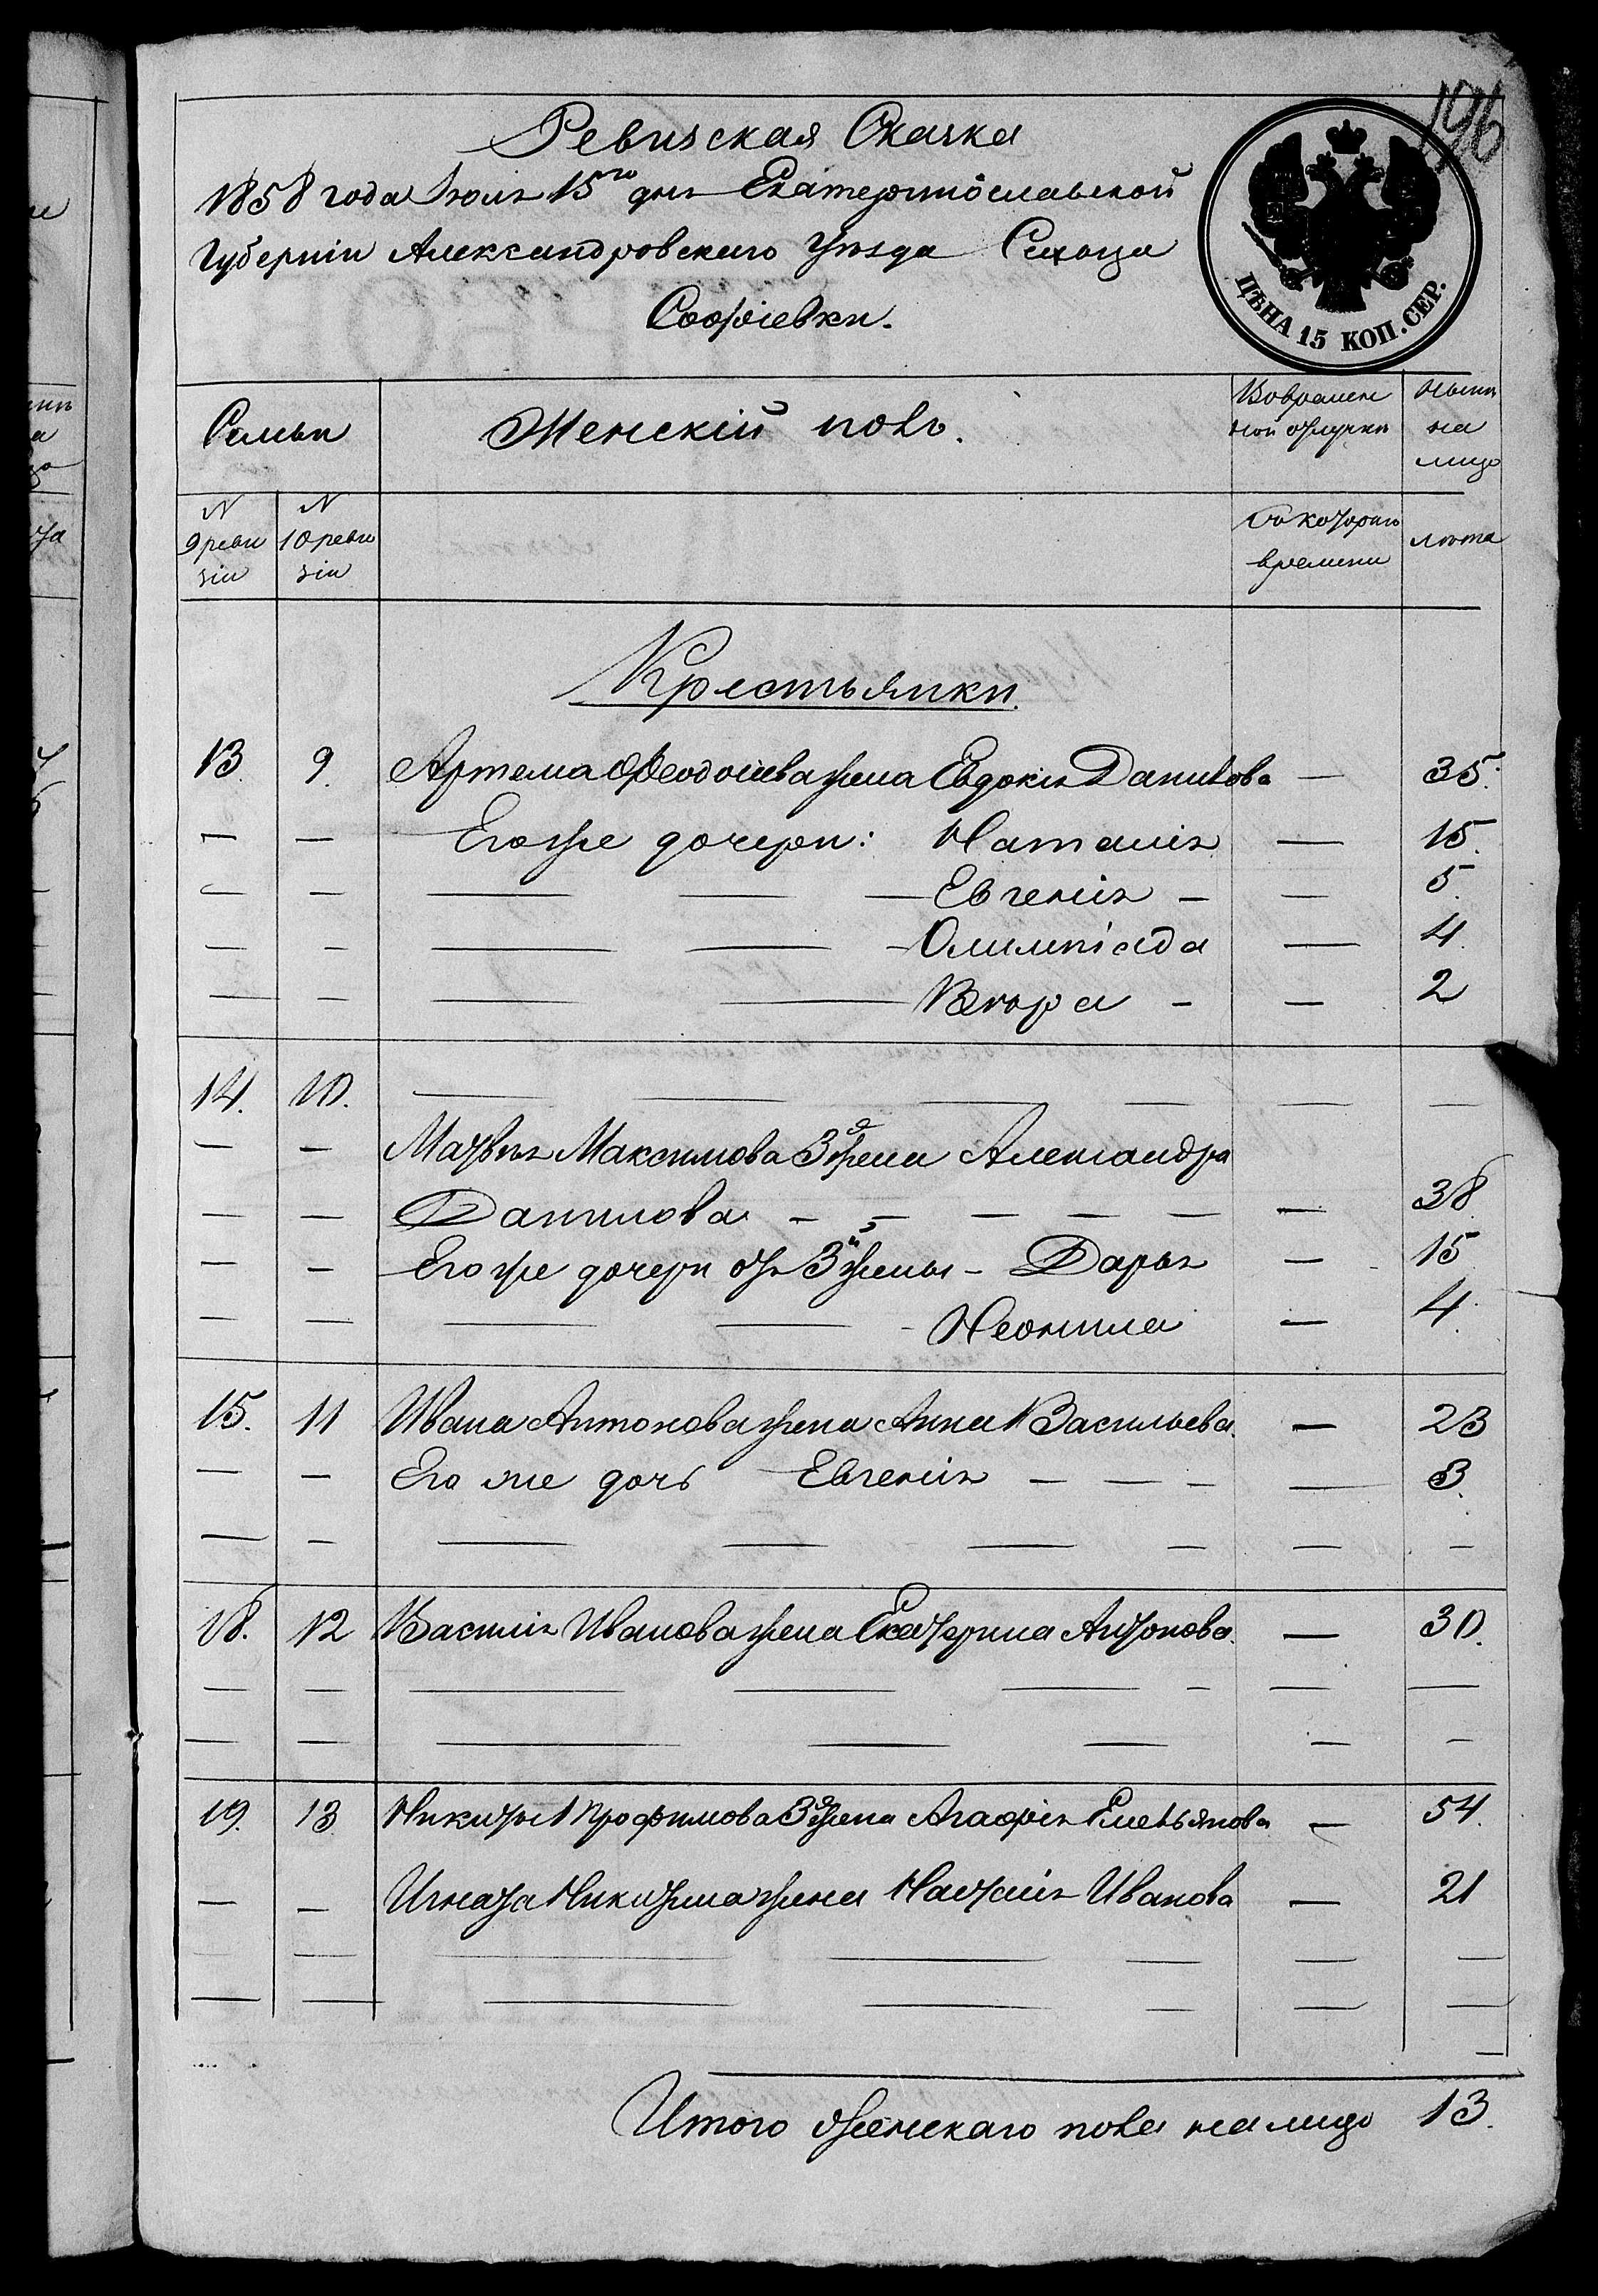 196
Ревизская Сказка
1858 года Іюля 15го дня Екатеринославской
Губерніи Александровскаго Уѣзда Сельца
Софіевки.
ЦѢНА 15 КОП. СЕР.
Семьи
Женскій полъ.
Во времен
ной отлучкѣ
Нынѣ
на
лицо
N
9 реви
зіи
N
10 реви
зіи
Съ котораго
времени
лѣта
Крестьянки.
13. 9. Артема Феодосіева жена Евдокія Данилова — 35.
— — Его же дочери: Наталія — 15.
— — — — — Евгенія — — 5.
— — — — — Олимпіада — 4.
— — — — Вѣра — — 2
14. 10. — — — — — —
— — Матвѣя Максимова 3я жена Александра
— — Данилова — — — — — — 38
— — Его же дочери отъ 3й жены — Дарья — 15
— — — — — Неонила — 4.
15. 11 Ивана Антонова жена Анна Васильева — 23
— — Его же дочь Евгенія — — — — 3.
— — — — — — — —
18. 12 Василія Иванова жена Екатерина Антонова. — 30.
— — — — — — — —
— — — — — — —
19. 13. Никиты Трофимова 3я жена Агафія Емельянова — 54.
— — Игната Никитина жена Наталія Иванова — 21
— — — — — — —
— — — — — — —
Итого женскаго пола на лицо 13.